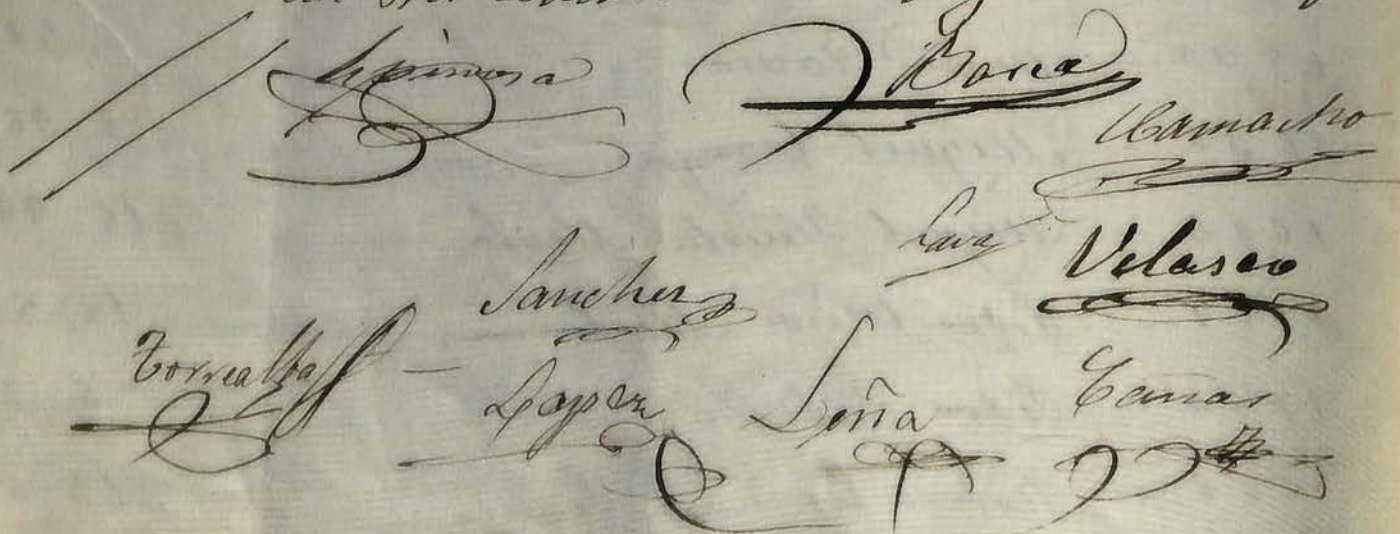 Espinosa Borea
Camacho
Lara Velasco
Sanchez
Torrealba
Lopez Leña Cañas